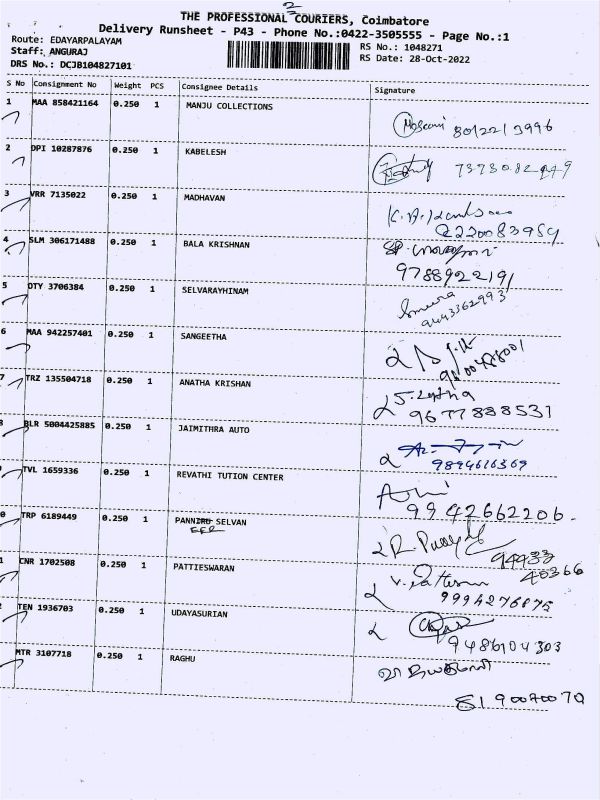 2
THE PROFESSIONAL COURIERS, Coimbatore
Delivery Runsheet - P43 - Phone No.:0422-3505555 - Page No.:1
Route: EDAYARPALAYAM
RS No.: 1048271
Staff: ANGURAJ
RS Date: 28-Oct-2022
DRS No.: DCJB104827101
S No Consignment No Weight PCS Consignee Details Signature
1 MAA 858421164 0.250 1 MANJU COLLECTIONS
2 DPI 10287876 0.250 1 KABELESH
3 VRR 7135022 0.250 1 MADHAVAN
4 SLM 306171488 0.250 1 BALA KRISHNAN
9788922191
5 OTY 3706384 0.250 1 SELVARAYHINAM
9443362993
6 MAA 942257401 0.250 1 SANGEETHA
7 TRZ 135504718 0.250 1 ANATHA KRISHAN
9677888531
BLR 5004425885 0.250 1 JAIMITHRA AUTO
9894616369
TVL 1659336 0.250 1 REVATHI TUTION CENTER
9942662206
0 TRP 6189449 0.250 1 PANNIRU SELVAN
EER
94433
40366
1 CNR 1702508 0.250 1 PATTIESWARAN
9994276875
TEN 1936703 0.250 1 UDAYASURIAN
9486104303
MTR 3107718 0.250 1 RAGHU
8190070070